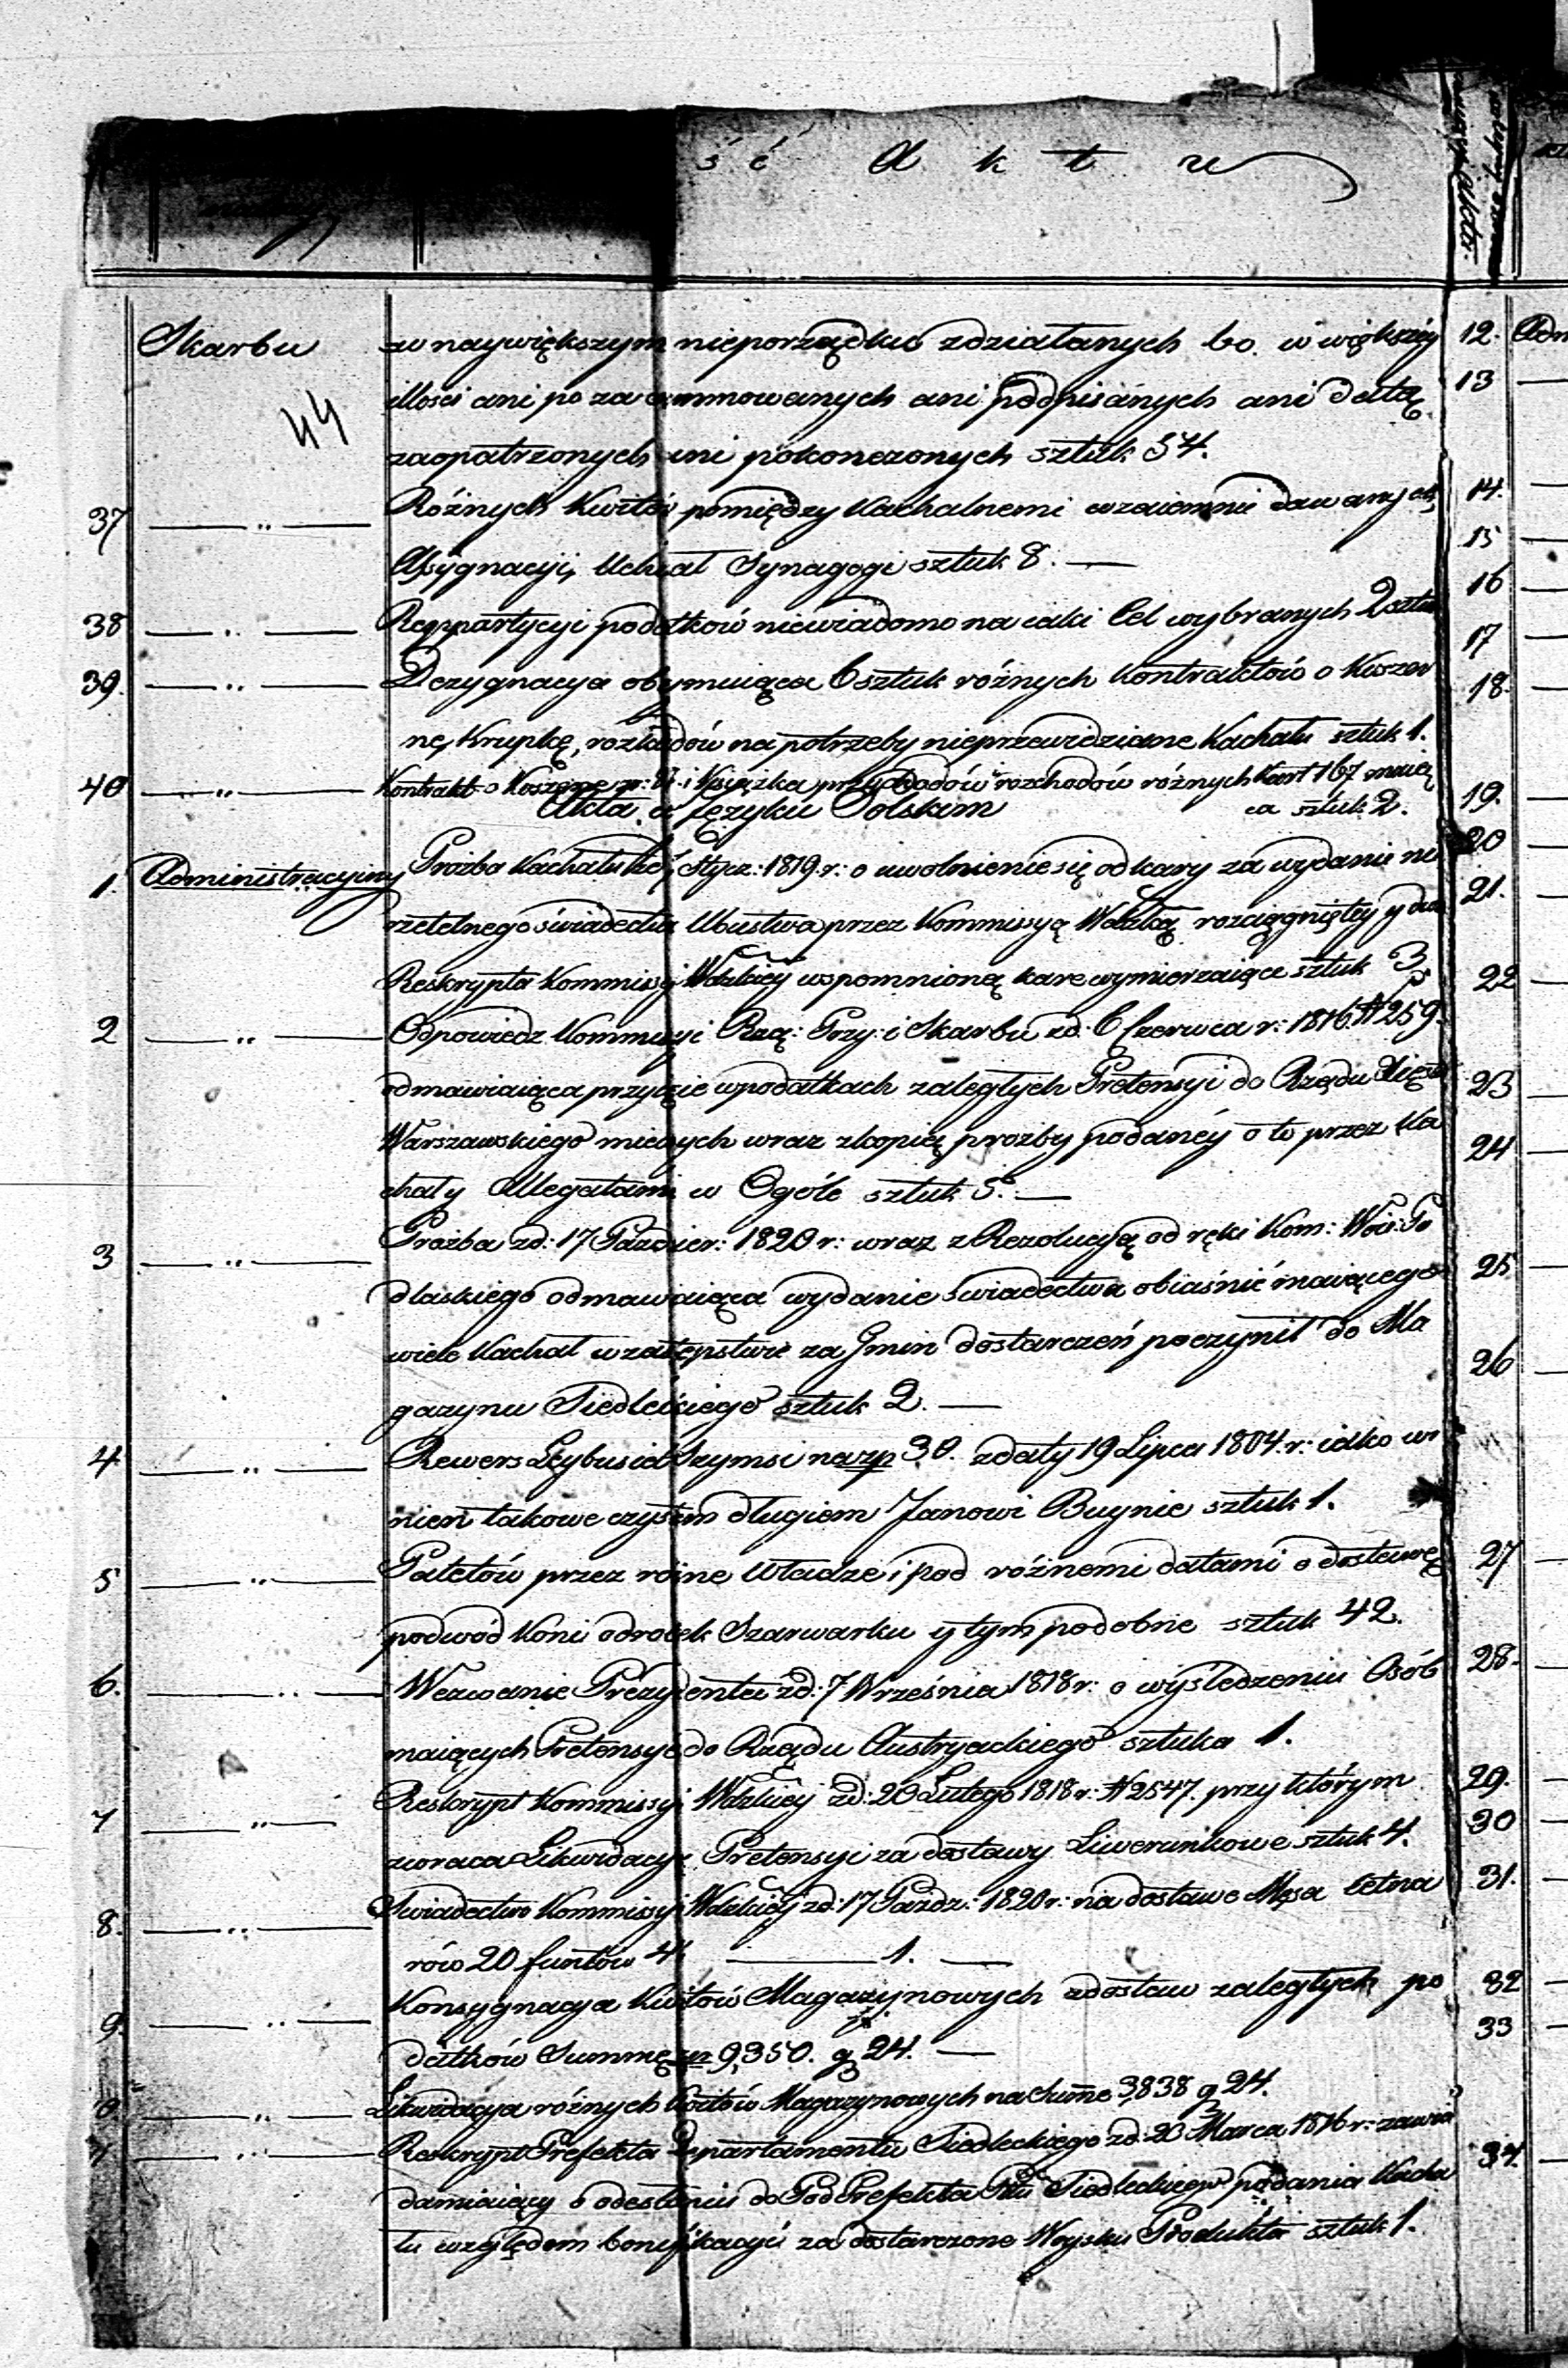 ść Aktu
Skarbu w naywiększym nieporządku zdziałanych bo. w większéy
44 illości ani pozasummowanych ani podpisánych ani datą
zaopatrzonych ani pokonczonych sztuk 54.
37 —„— Różnych Kwitów pomiędzy Kachalnemi wzaiemnie dawanych,
Assygnacyi, Uchwał Synagogi sztuk 8. —
38 —„— Reppartycyi podatków niewiadomo na iaki Cel wybranych 2 sztu
39. —„— Dezygnacya obymuiąca 6 sztuk różnych Kontraktów o Koszer
ne, Krupkę, rozkładów na potrzeby nieprzewidziane Kachału sztuk 1.
40 —„— Kontrakt o Koszerne i Książka przychodów i rozchodów różnych Kart 167 maiąc
ca sztuk 2.
Akta w Języku Polskim
1. Administracyiny Proźba Kachału Stycz: 1819 r: o uwolnienie się od kary za wydanie nie
rzetelnego świadectwa Ubustwa przez Kommissyą Wdzką rozciągniętey y dwa
Reskrypta Kommissyi Wdzkiéy wspomnioną kare wymierzaiące sztuk 3
2 —„— Odpowiedz Kommissyi Rzą: Przy: i Skarbu zd: 6 Czerwca r: 1816 N 259.
odmawiaiąca przyięcie w podatkach zaległych Pretensyi do Rządu Xięst
Warszawskiego mianych wraz z kopią proźby podanéy o to przez Ka
chały Allegatami w Ogóle sztuk 5. —
3 —„— Proźba zd: 17 Paździer: 1820 r: wraz z Rezolucyą od ręki Kom: Woi: Po
dlaskiego odmawiaiąca wydanie świadectwa obiaśnić maiącego
wiele Kachał w zastępstwie za Gmin dostarczeń poczynił do Ma
gazynu Siedleckiego sztuk 2. —
4 —„— Rewers Leybusia Szymsi na zp 30. z daty 19 Lipca 1804. r: iako wi
nien takowe czystem długiem Janowi Buynie sztuk 1.
5 —„— Paletów przez różne Władze i pod różnemi datami o dostawę
podwód Koni odrobek Szarwarku y tym podobne sztuk 42.
6. —„— Wezwanie Prezydenta zd: 7 Września 1818 r: o wyśledzeniu Osób
maiących Pretensye do Rządu Austryackiego sztuka 1.
7 —„— Reskrypt Kommissyi Wdzkiéy zd: 20 Lutego 1818 r: N 2547. przy którym
zwraca Likwidacye Pretensyi za dostawy Liwerunkowe sztuk 4.
8. —„— Świadectwo Kommissyi Wdzkiéy zd: 17 Paźdz: 1820 r: na dostawe Mięsa Cetna
rów 20 funtów 4 — 1. —
9. —„— Konsygnacya Kwitów Magazynowych z dostaw zaległych po
datków Summę zp 9,350. g 24. —
—„— Likwidacya różnych Kwitów Magazynowych na Summe 3,838 g 24.
—„— Reskrypt Prefekta Departamentu Siedleckiego zd: 20 Marca 1816 r: zawia
damiaiący o odesłaniu do Pod Prefekta Ptu Siedleckiego podania Kacha
łu względem bonifikacyi za dostarczone Woysku Produkta sztuk 1.
12. Adm
13 —
14. —
15 —
16 —
17 —
18. —
19. —
20 —
21. —
22 —
23 —
24 —
25 —
26 —
27 —
28. —
29. —
30 —
31. —
32 —
33 —
34. —